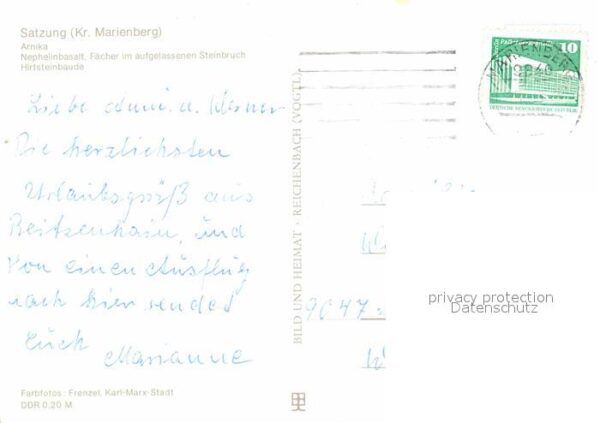 Satzung (Kr. Marienberg)
Arnika
Nephelinbasalt, Fächer im aufgelassenen Steinbruch
Hirtsteinbaude
Liebe Anni. u. Werner
Die herzlichsten
Urlaubsgrüß aus
Reitzenhain, und
von einen Ausflug
nach hier sendet
Euch
Marianne
Farbfotos: Frenzel, Karl-Marx-Stadt
DDR 0,20 M
BILD UND HEIMAT · REICHENBACH (VOGTL)
10
DEUTSCHE DEMOKRATISCHE REPUBLIK
MARIENBERG
9340
9047
privacy protection
Datenschutz